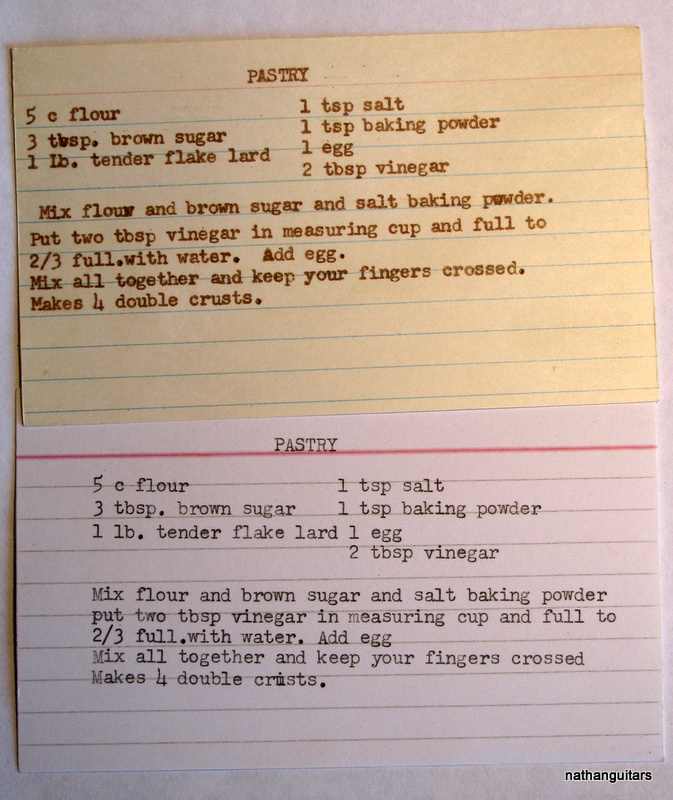 PASTRY
5 c flour 1 tsp salt
3 tbsp. brown sugar 1 tsp baking powder
1 lb. tender flake lard 1 egg
2 tbsp vinegar
Mix flour and brown sugar and salt baking powder.
Put two tbsp vinegar in measuring cup and full to
2/3 full.with water. Add egg.
Mix all together and keep your fingers crossed.
Makes 4 double crusts.
PASTRY
5 c flour 1 tsp salt
3 tbsp. brown sugar 1 tsp baking powder
1 lb. tender flake lard 1 egg
2 tbsp vinegar
Mix flour and brown sugar and salt baking powder
put two tbsp vinegar in measuring cup and full to
2/3 full.with water. Add egg
Mix all together and keep your fingers crossed
Makes 4 double crusts.
nathanguitars